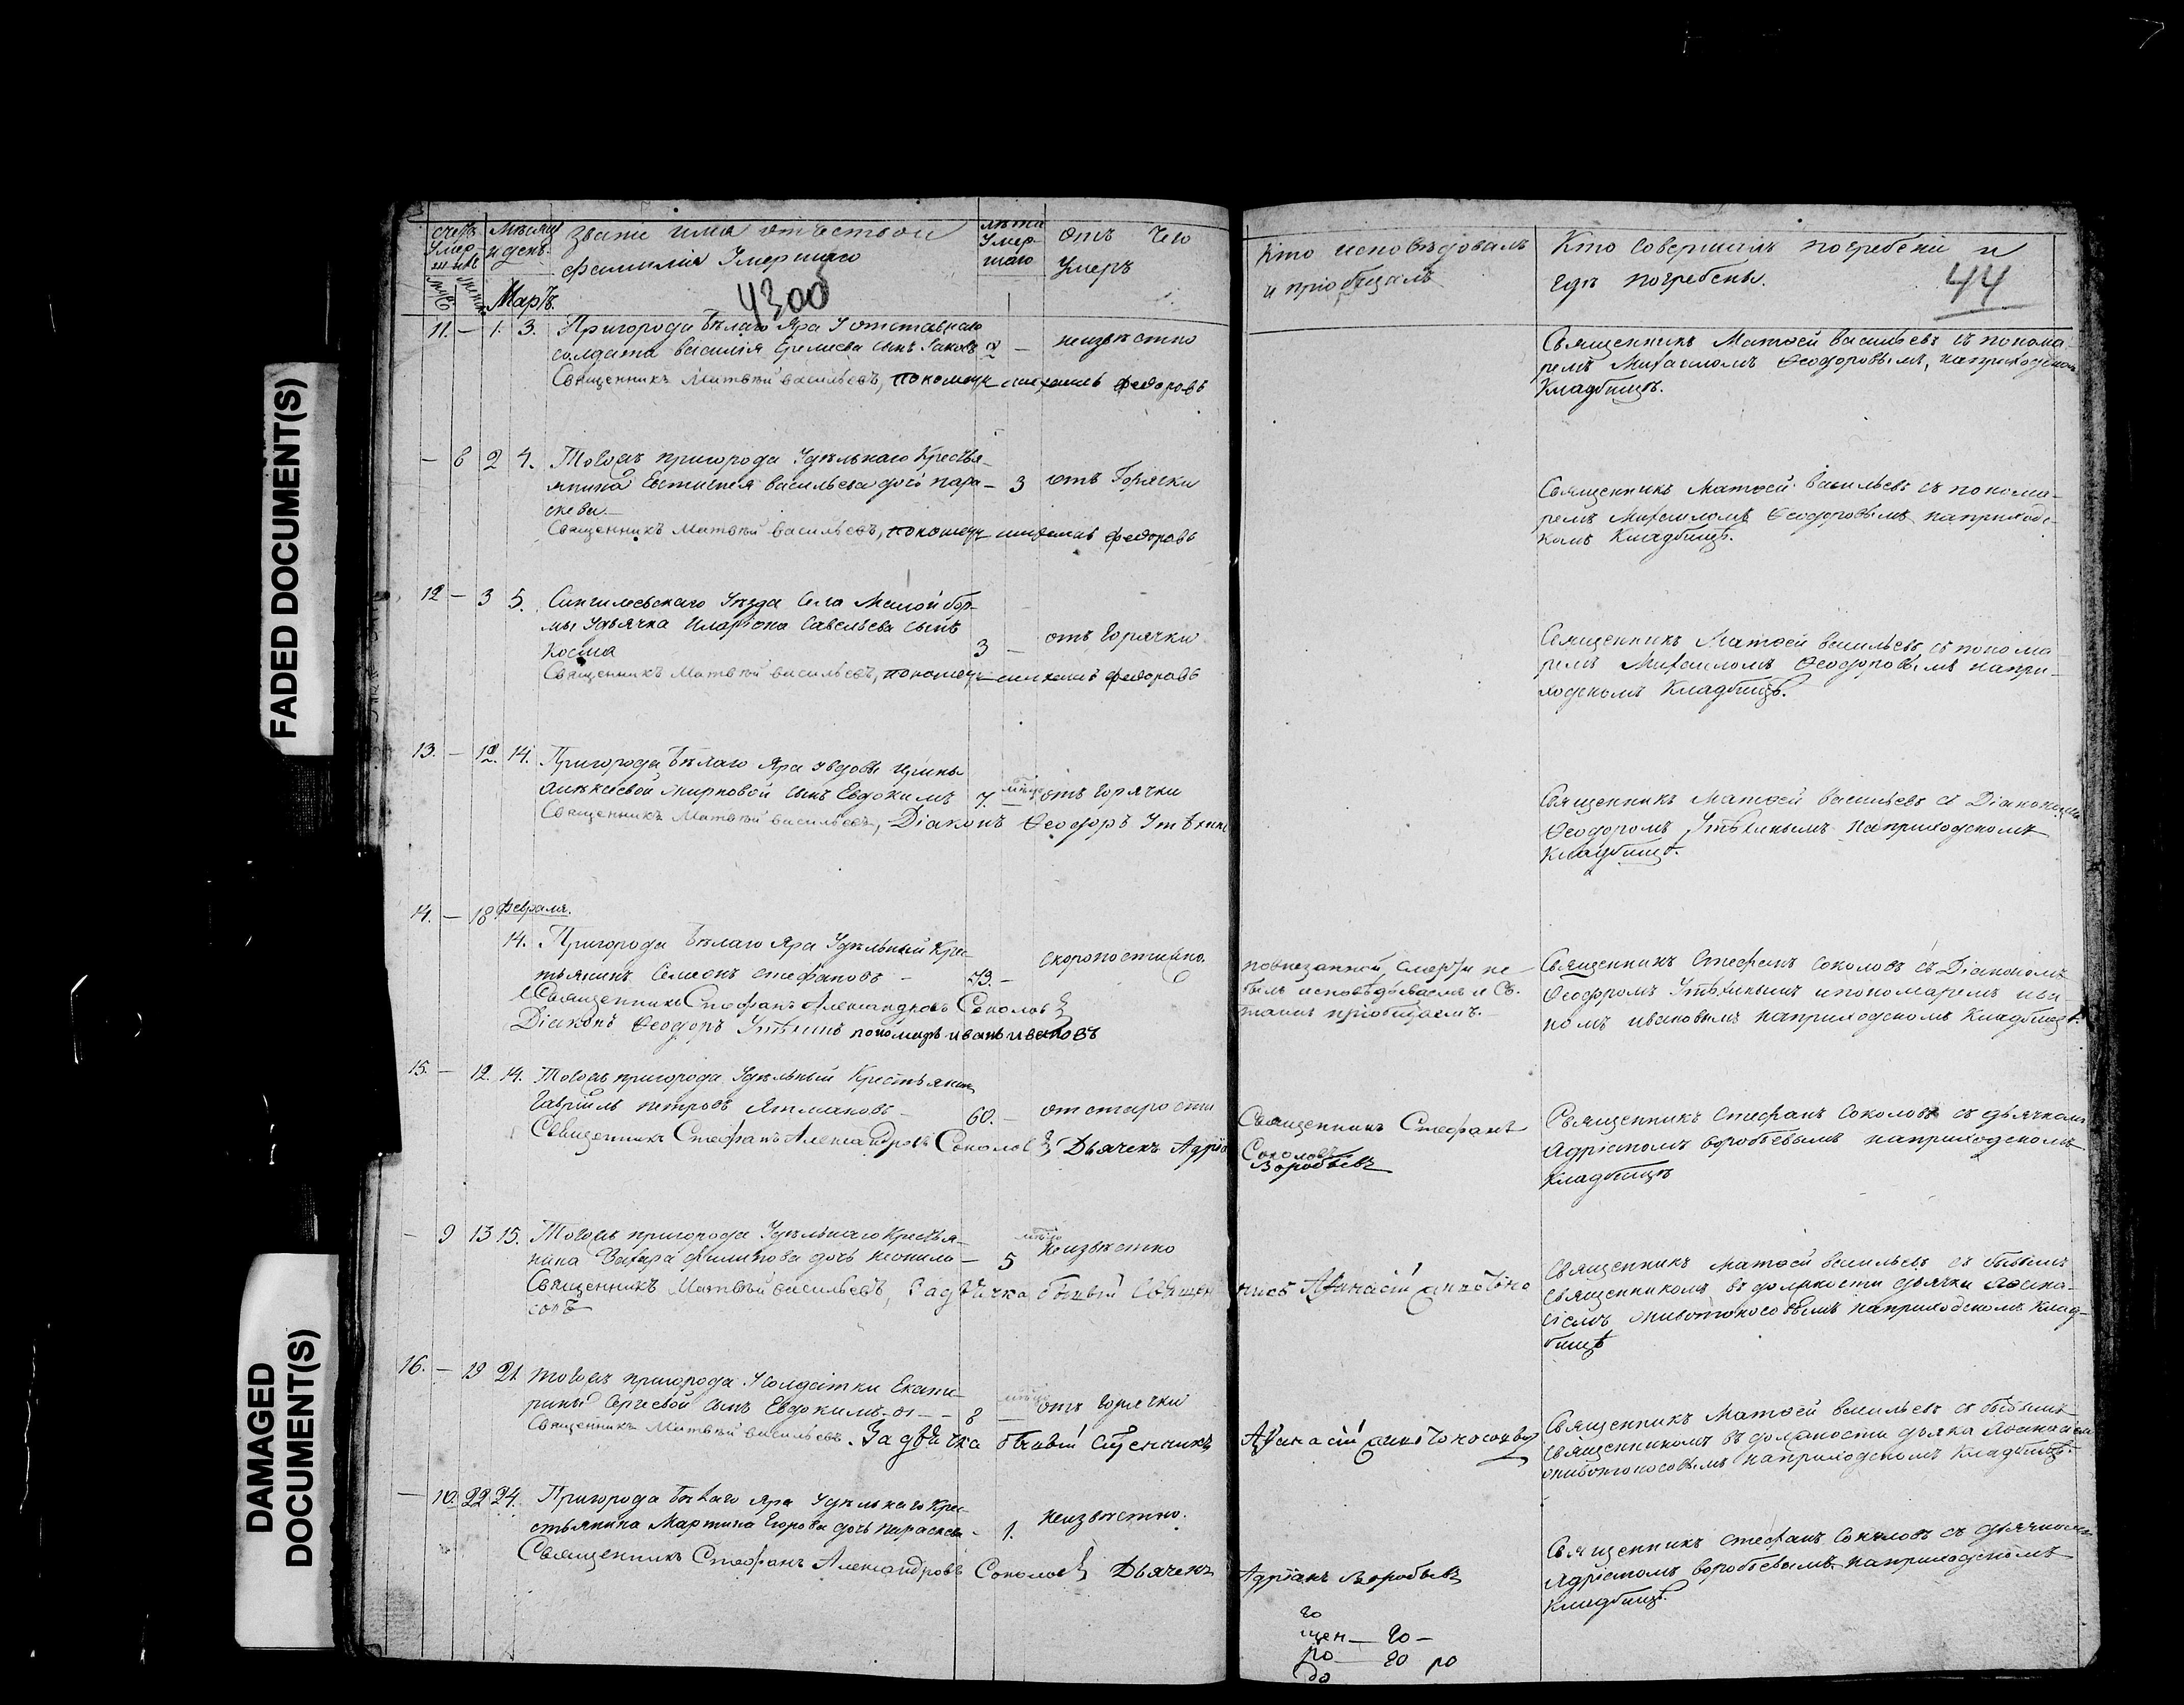 FADED DOCUMENT(S)
DAMAGED
DOCUMENT(S)
счетъ умер-шихъ
Мѣсяцъ и день.
Званіе имя отчество и
фамилія Умершаго
4300
лѣта Умер-шаго
отъ чего
Умеръ
Кто исповѣдовалъ
и пріобщалъ
Кто совершалъ погребеніе и
гдѣ погребены.
44
Мартъ.
11. — 1. 3. Пригорода Бѣлаго Яра У отставнаго
солдата Василія Еремеева сынъ Іаковъ 2 — неизвѣстно
Священникъ Матвѣй Васильевъ, пономарь михаилъ федоровъ
Священникъ Матѳей Васильевъ съ понома
ремъ Михаиломъ Ѳеодоровымъ, наприходскомъ
Кладбищѣ.
— 8 2 4. Тогожъ пригорода Удѣльнаго Крестья-
янина Евстигнея Васильева дочь пара- — 3 отъ Горячки
скева —
Священникъ Матвѣй Васильевъ, пономарь михаилъ федоровъ
Священникъ Матѳей Васильевъ съ понома-
ремъ Михаиломъ Ѳеодоровымъ наприходс-
комъ Кладбищѣ.
12 — 3 5. Сингилеевскаго Уѣзда Села Малой бор-
мы Удьячка Иларіона Савельева сынъ
Косма 3 — отъ Горячки
Священникъ Матвѣй Васильевъ, пономарь михаилъ федоровъ
Священникъ Матѳей Васильевъ съ понома
ремъ Михаиломъ Ѳеодоровымъ напри-
ходскомъ Кладбищѣ.
13. — 12. 14. Пригорода Бѣлаго Яра увдовы Ирины
Алексѣевой сынъ Евдокимъ 7. — отъ Горячки
Священникъ Матвѣй Васильевъ, Діаконъ Ѳеодоръ Утѣхинъ
Священникъ Матѳей Васильевъ съ Діакономъ
Ѳеодоромъ Утѣхинымъ наприходскомъ
Кладбищѣ.
14. — 18 Февраля.
14. Пригорода Бѣлаго Яра Удѣльный Крес
тьянинъ Семіонъ Стефановъ — 73. — скоропостижно.
Священникъ Стефанъ Александровъ Соколовъ
Діаконъ Ѳеодоръ Утѣхинъ пономарь иванъ ивановъ
повнезапной смерти не
былъ исповѣдываемъ и Св.
таинъ пріобщаемъ. —
Священникъ Стефанъ Соколовъ съ Діакономъ
Ѳеодоромъ Утѣхинымъ ипономаремъ ива
номъ ивановымъ наприходскомъ Кладбищѣ.
15. — 12. 14. Тогожъ пригорода Удѣльный Крестьянинъ
Гавріилъ петровъ Ятмановъ — 60. — отстарости
Священникъ Стефанъ Александровъ Соколовъ Дьячекъ Адріа
Священникъ Стефанъ
Соколовъ
Воробьевъ
Священникъ Стефанъ Соколовъ съ дьячкомъ
Адріаномъ Воробьевымъ наприходскомъ
Кладбищѣ
— 9 13 15. Тогожъ пригорода Удѣльнаго Крестья-
нина Захара Филипова дочь неонила — 5 неизвѣстно
Священникъ Матвѣй Васильевъ, За дьячка бывый Священ
никъ Афанасій
Священникъ Матѳей Васильевъ съ бывымъ
Священникомъ въ должности дьячка Аѳана-
сіемъ Животоносовымъ наприходскомъ Клад-
бищѣ
16. — 19 21. Тогожъ пригорода Усолдатки Екате-
рины Сергѣевой сынъ Евдокимъ — 8 — отъ Горячки
Священникъ Матвѣй Васильевъ. За дьячка бывый Священникъ
Афанасій Животоносовъ
Священникъ Матѳей Васильевъ съ бывымъ
Священникомъ въ должности дьячка Аѳанасіемъ
Животоносовымъ наприходскомъ Кладбищѣ.
— 10. 22 24. Пригорода Бѣлаго Яра Удѣльнаго Крес-
стьянина Мартина Егорова дочь параскева — 1. неизвѣстно.
Священникъ Стефанъ Александровъ Соколовъ Дьячекъ
Адріанъ Воробьевъ
Священникъ Стефанъ Соколовъ съ дьячкомъ
Адріаномъ Воробьевымъ наприходскомъ
Кладбищѣ.